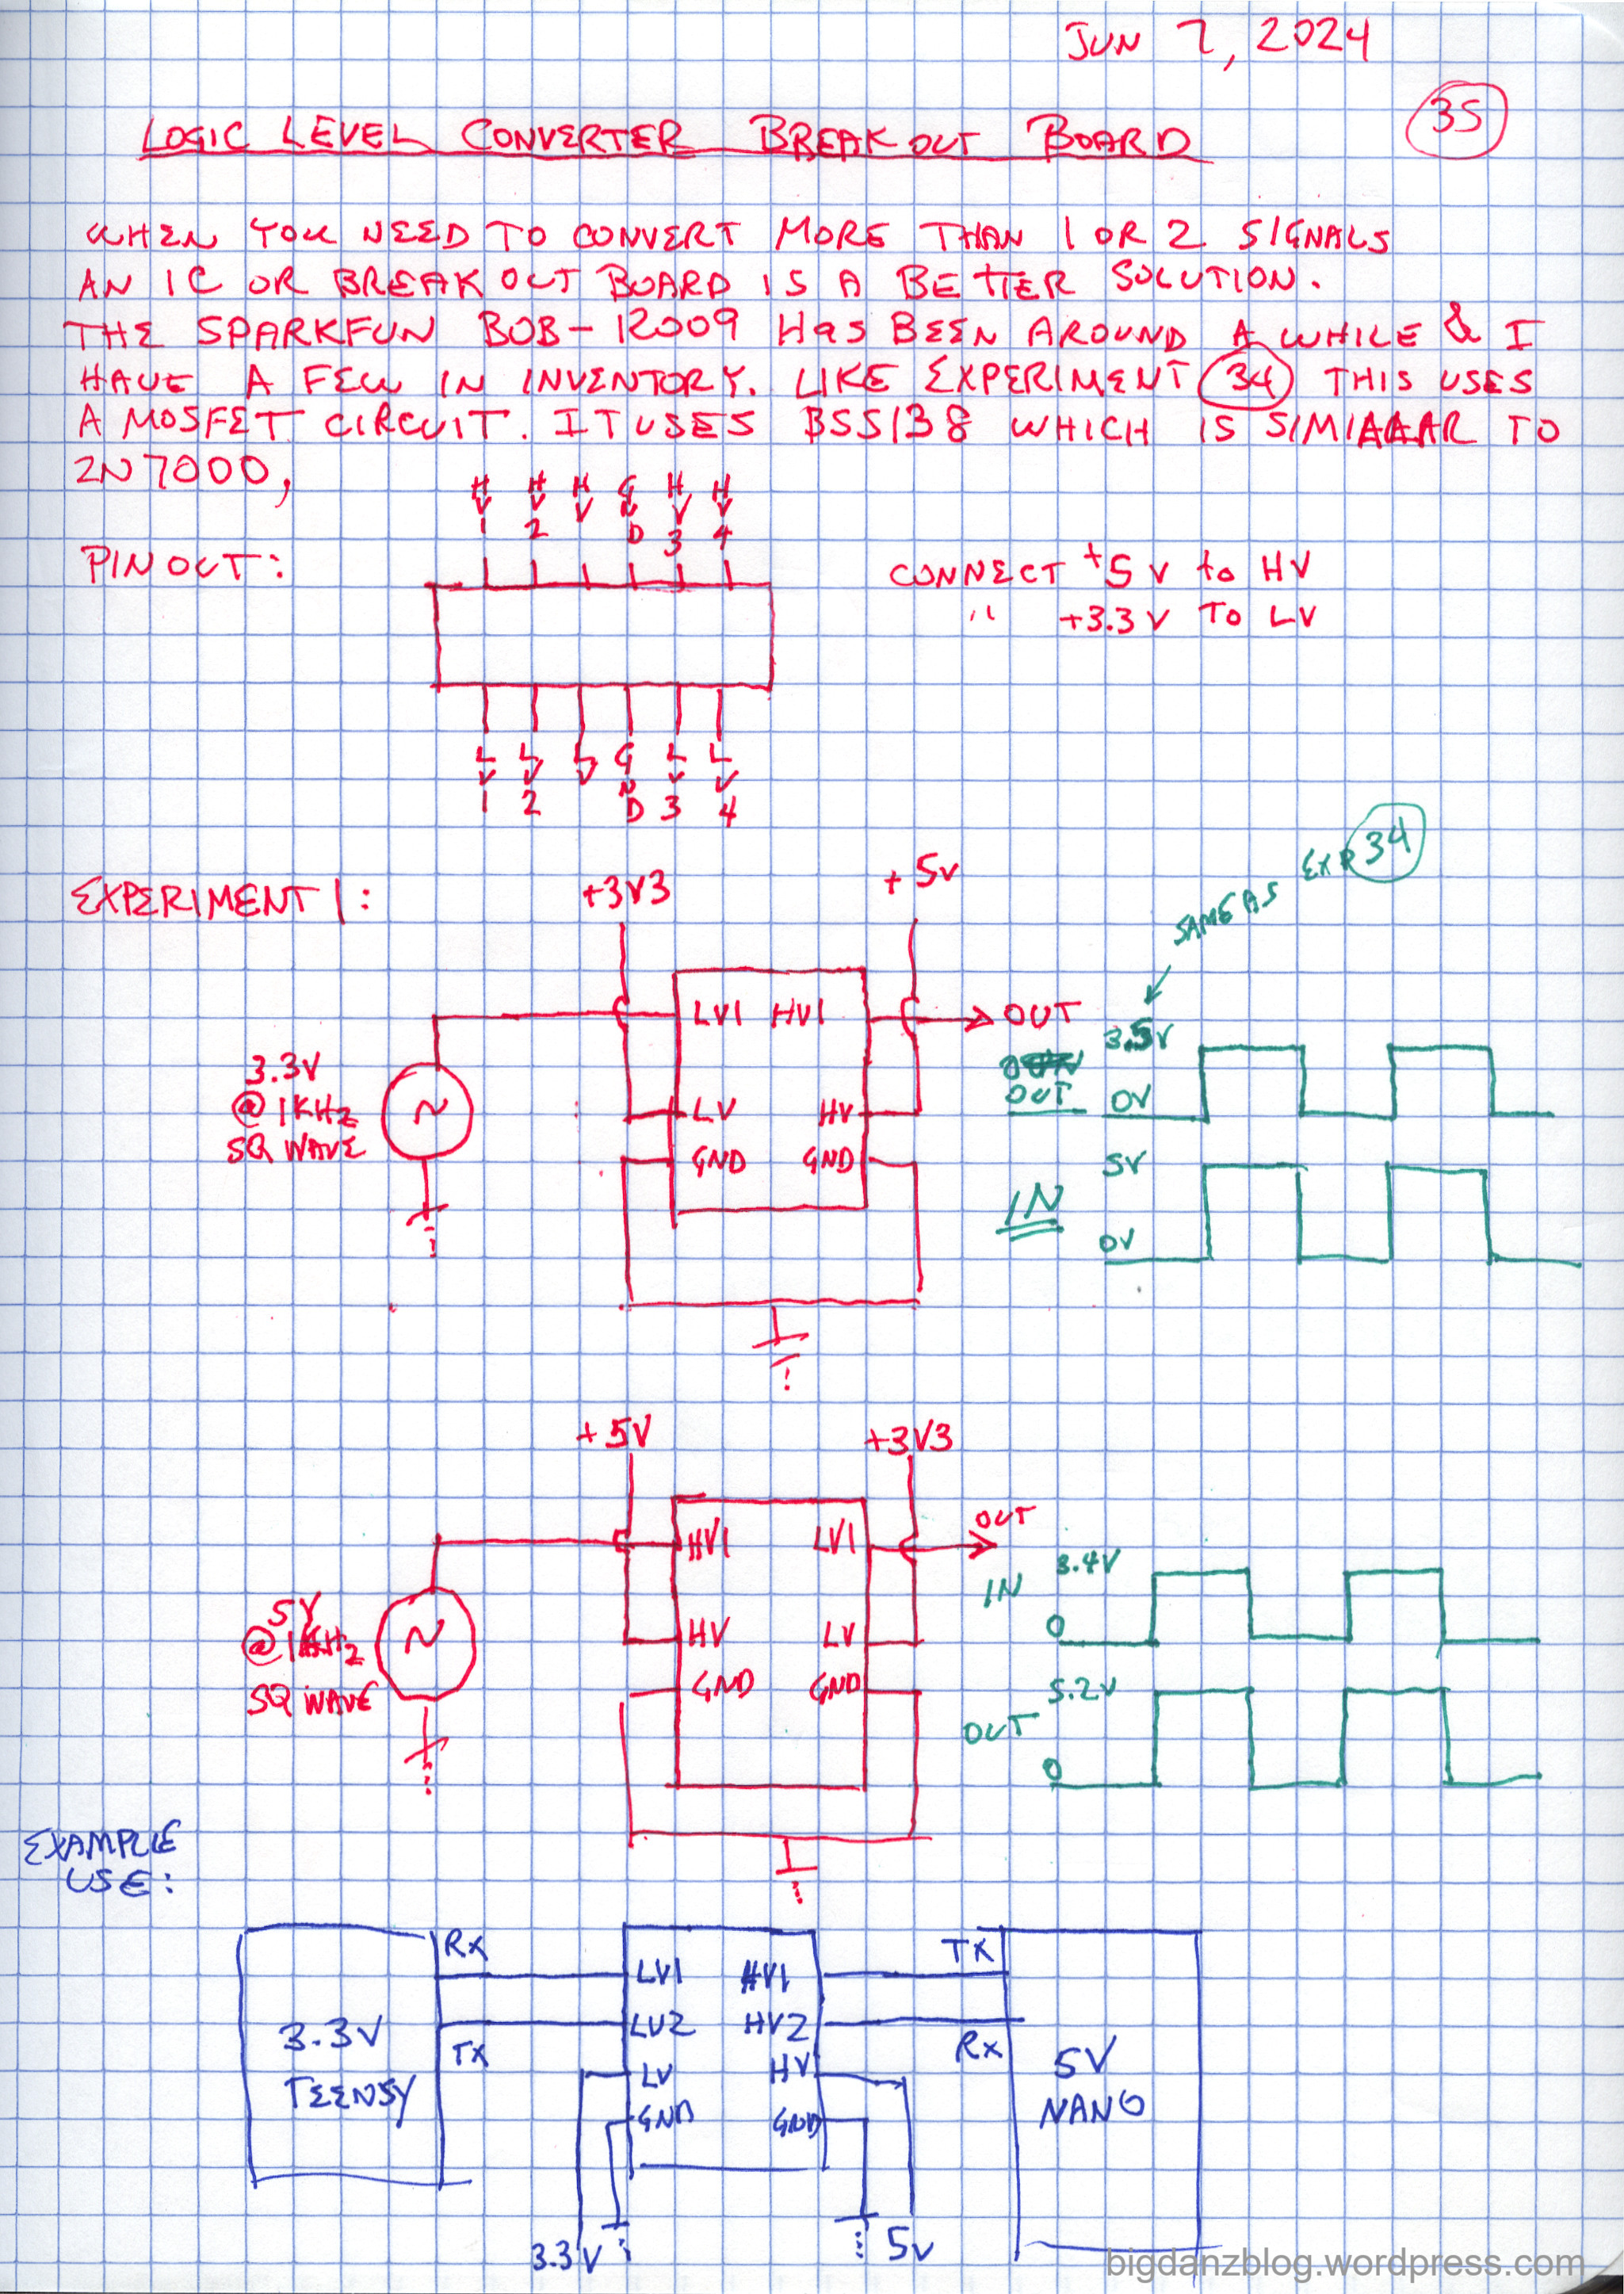 JUN 7, 2024
35
LOGIC LEVEL CONVERTER BREAKOUT BOARD
WHEN YOU NEED TO CONVERT MORE THAN 1 OR 2 SIGNALS
AN IC OR BREAKOUT BOARD IS A BETTER SOLUTION.
THE SPARKFUN BOB-12009 HAS BEEN AROUND A WHILE & I
HAVE A FEW IN INVENTORY. LIKE EXPERIMENT 34 THIS USES
A MOSFET CIRCUIT. IT USES BSS138 WHICH IS SIMILAR TO
2N7000,
HV1 HV2 HV GND HV3 HV4
PINOUT:
CONNECT +5V to HV
" +3.3V TO LV
LV1 LV2 LV GND LV3 LV4
SAME AS EXP 34
EXPERIMENT 1:
+3V3
+5V
LV1 HV1
OUT
3.3V
@ 1KHZ
SQ WAVE
LV HV
GND GND
3.5V
OUT
0V
5V
IN
0V
+5V
+3V3
HV1 LV1
OUT
5V
@ 1KHZ
SQ WAVE
HV LV
GND GND
3.4V
IN
0
5.2V
OUT
0
EXAMPLE
USE:
3.3V
TEENSY
RX
TX
LV1 HV1
LV2 HV2
LV HV
GND GND
TX
RX
5V
NANO
3.3V
5V
bigdanzblog.wordpress.com